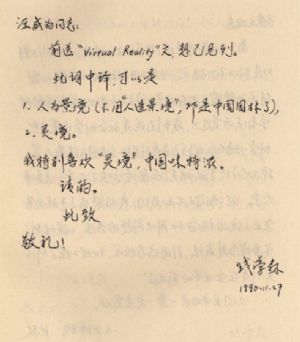 汪成为同志：
前送“Virtual Reality”文想已见到。
此词中译，可以是
1. 人为景境（不用“人造景境”，那是中国园林了），
2. 灵境。
我特别喜欢“灵境”，中国味特浓。
请酌。
此致
敬礼！
钱学森
1990.11.27